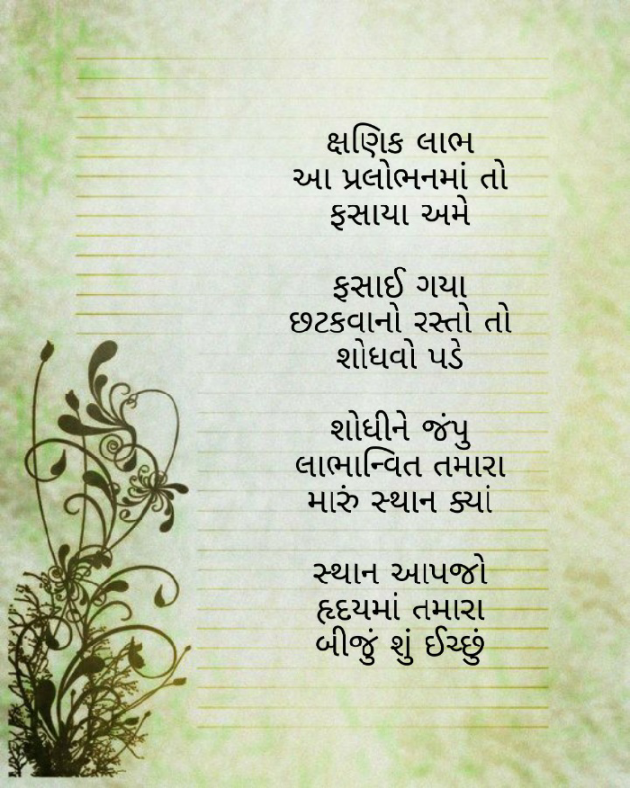 ક્ષણિક લાભ
આ પ્રલોભનમાં તો
ફસાયા અમે
ફસાઈ ગયા
છટકવાનો રસ્તો તો
શોધવો પડે
શોધીને જંપુ
લાભાન્વિત તમારા
મારું સ્થાન ક્યાં
સ્થાન આપજો
હૃદયમાં તમારા
બીજું શું ઈચ્છું